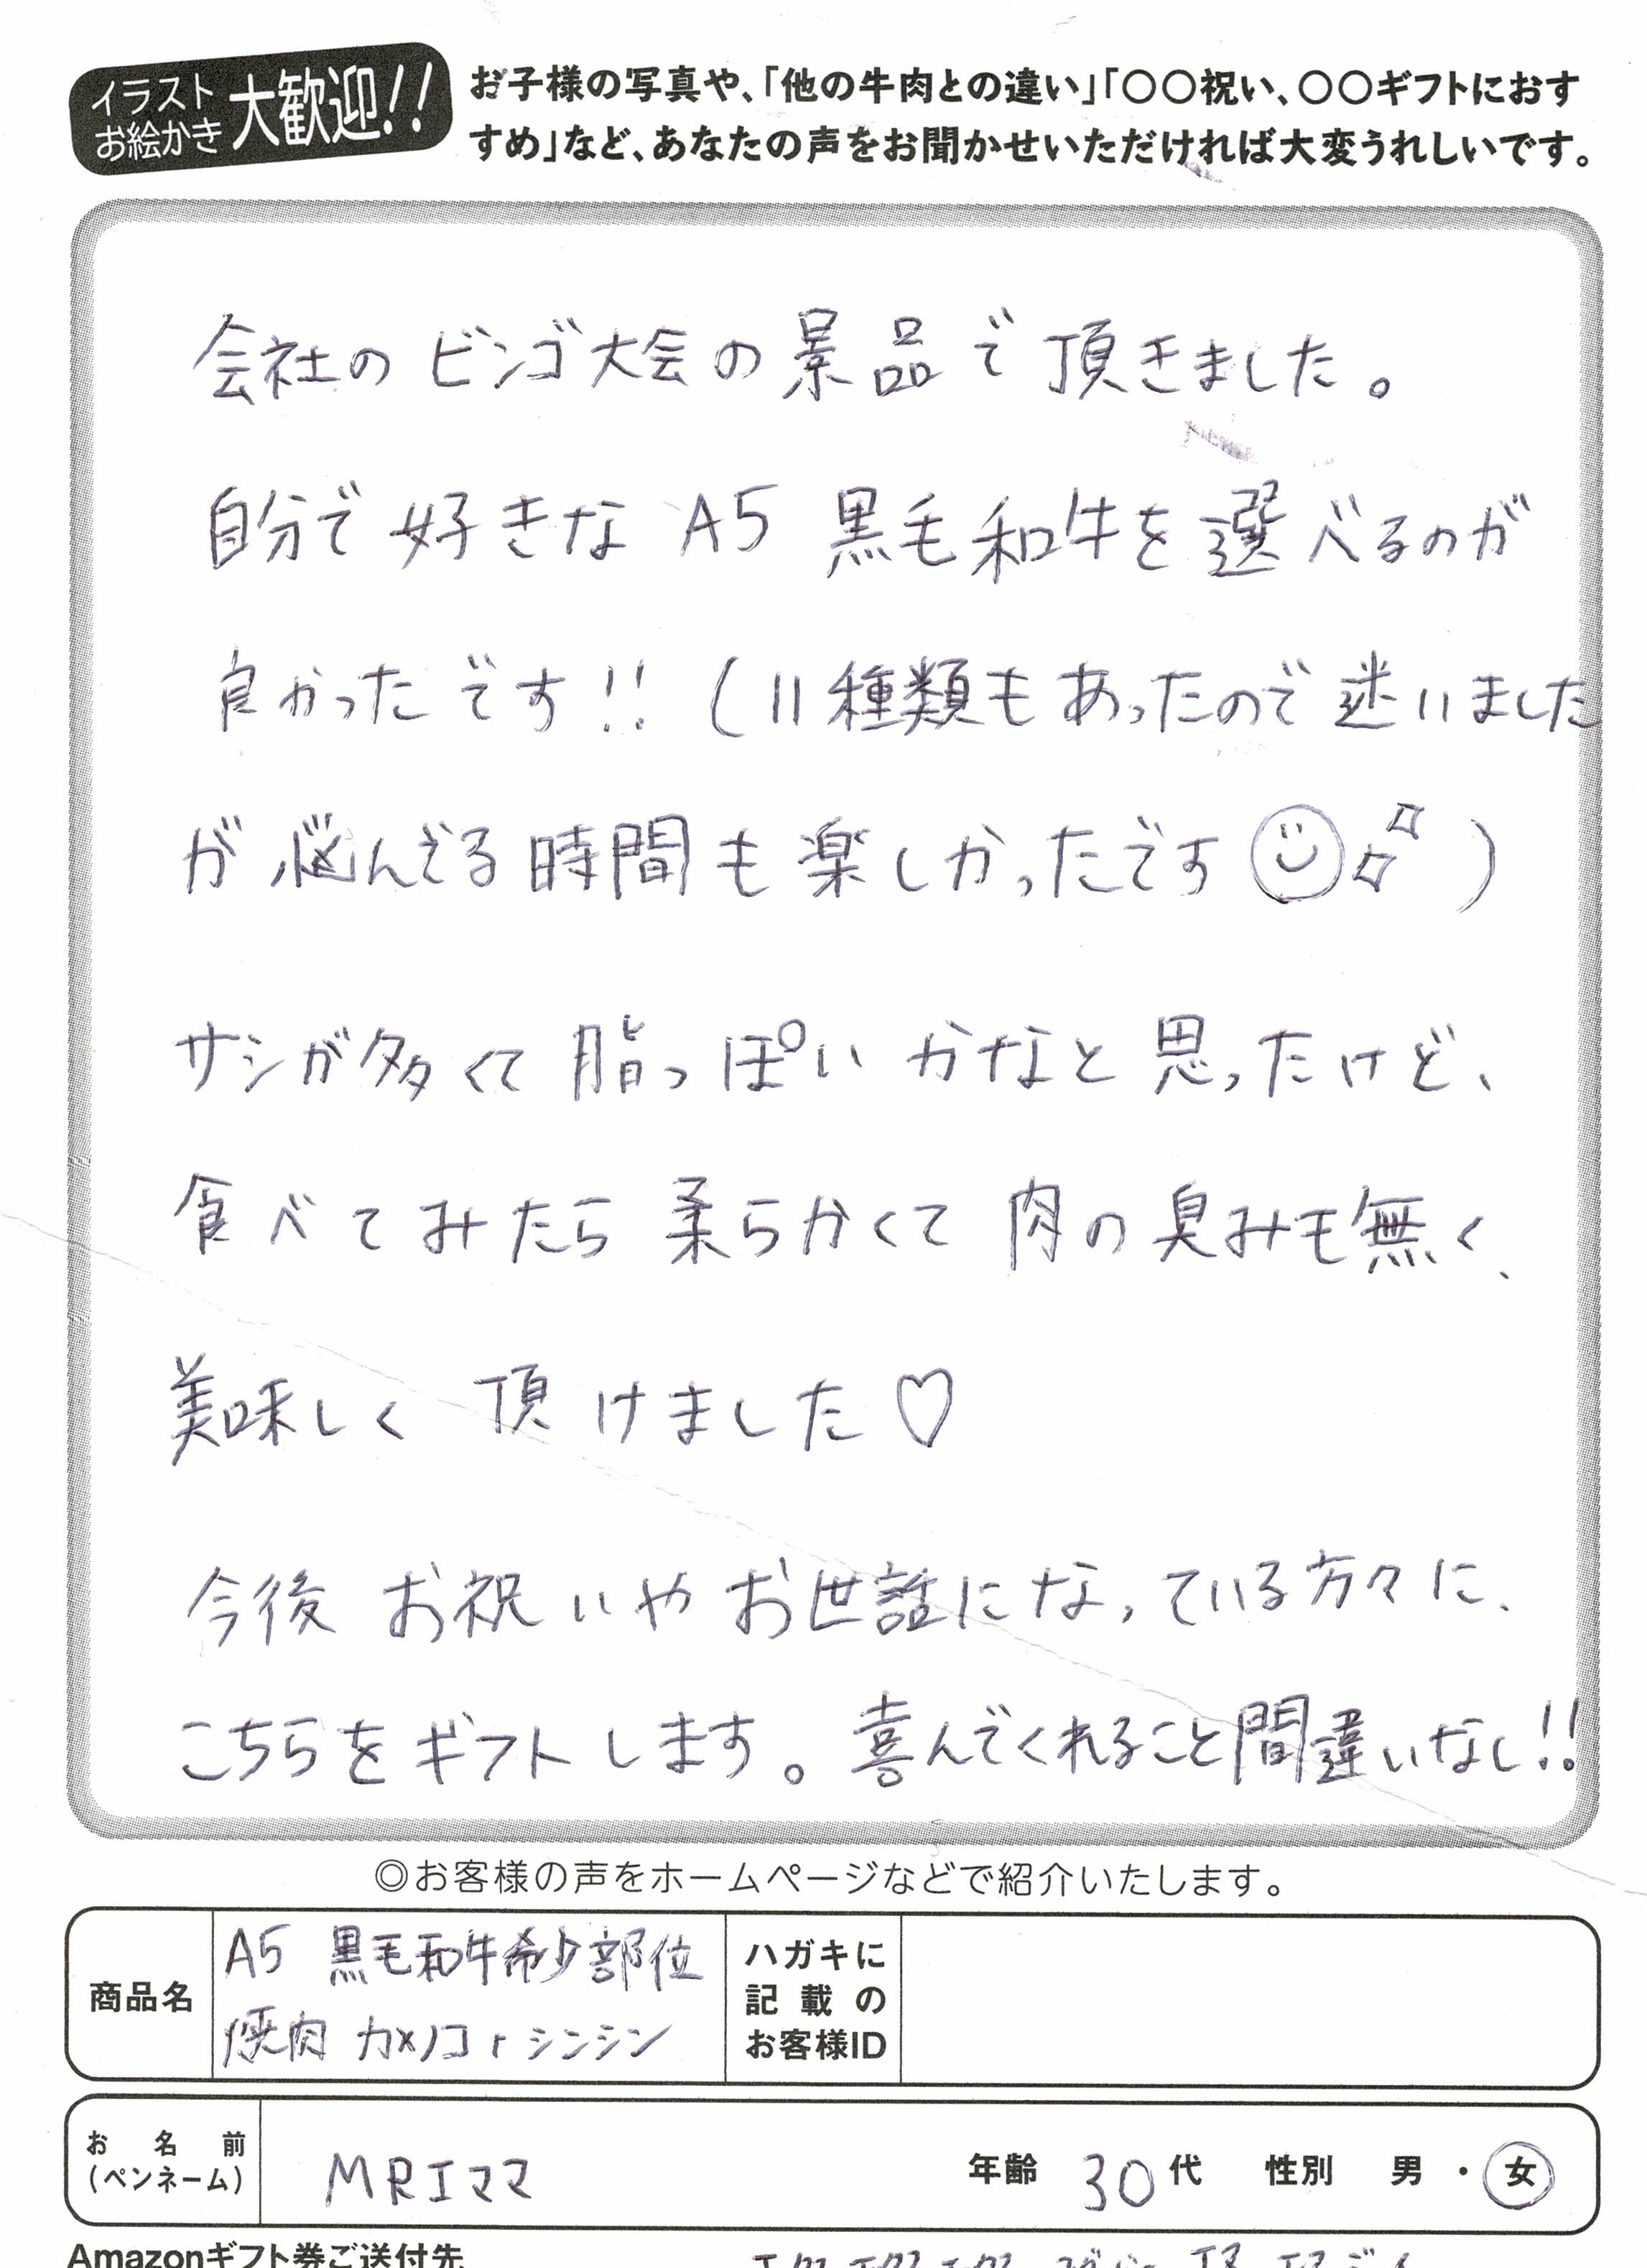 イラスト
お絵かき
大歓迎!!
お子様の写真や、「他の牛肉との違い」「〇〇祝い、〇〇ギフトにおす
すめ」など、あなたの声をお聞かせいただければ大変うれしいです。
会社の ビンゴ大会の景品で頂きました。
自分で好きな A5 黒毛和牛を選べるのが
良かったです!! (11種類もあったので迷いました
が悩んでる時間も楽しかったです )
サシが多くて脂っぽいかなと思ったけど、
食べてみたら柔らかくて肉の臭みも無く、
美味しく頂けました♡
今後お祝いやお世話になっている方々に、
こちらをギフトします。喜んでくれること間違いなし!!
◎お客様の声をホームページなどで紹介いたします。
商品名
A5 黒毛和牛希少部位
焼肉 カメノコ シンシン
ハガキに
記載の
お客様ID
お名前
(ペンネーム)
MRIママ
年齢 30代 性別 男・女
Amazonギフト券ご送付先